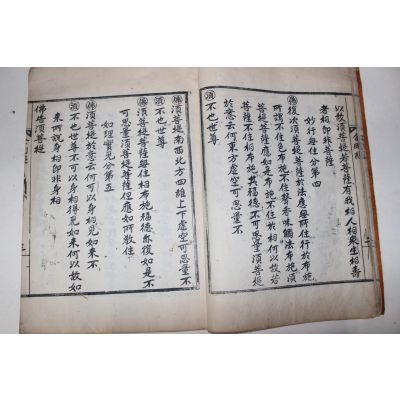 金剛經
以故須菩提若菩薩有我相人相衆生相壽
者相即非菩薩
妙行無住分第四
佛復次須菩提菩薩於法應無所住行於布施
所謂不住色布施不住聲香味觸法布施須
菩提菩薩應如是布施不住於相何以故若
菩薩不住相布施其福德不可思量須菩提
於意云何東方虛空可思量不
須不也世尊
佛須菩提南西北方四維上下虛空可思量不
須不也世尊
佛須菩提菩薩無住相布施福德亦復如是不
可思量須菩提菩薩但應如所教住
如理實見分第五
佛須菩提於意云何可以身相見如來不
須不也世尊不可以身相得見如來何以故如
來所說身相即非身相
佛告須菩提